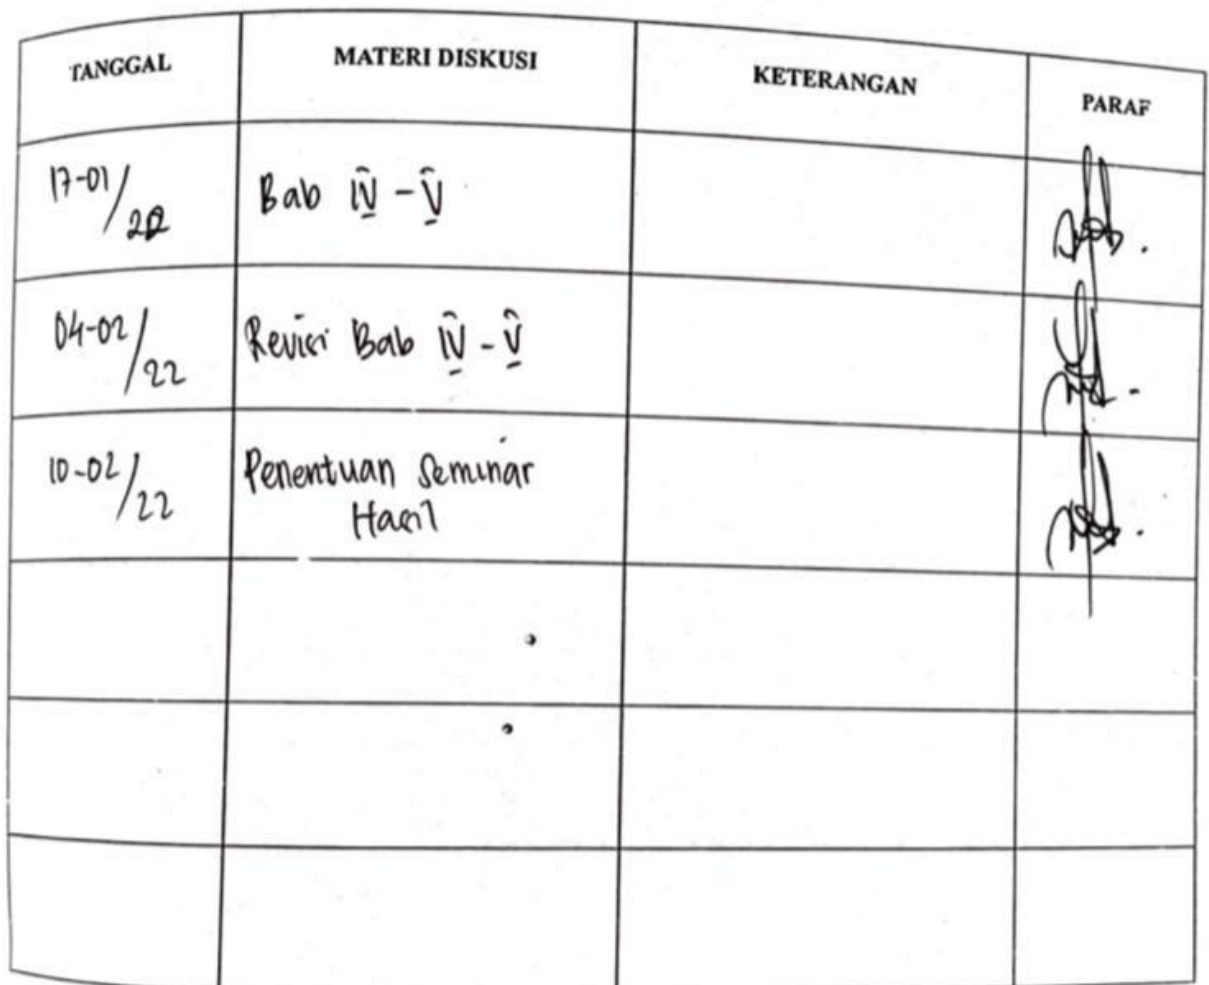 TANGGAL MATERI DISKUSI KETERANGAN PARAF
17-01/22 Bab IV - V
04-02/22 Revisi Bab IV - V
10-02/22 Penentuan Seminar
Hasil